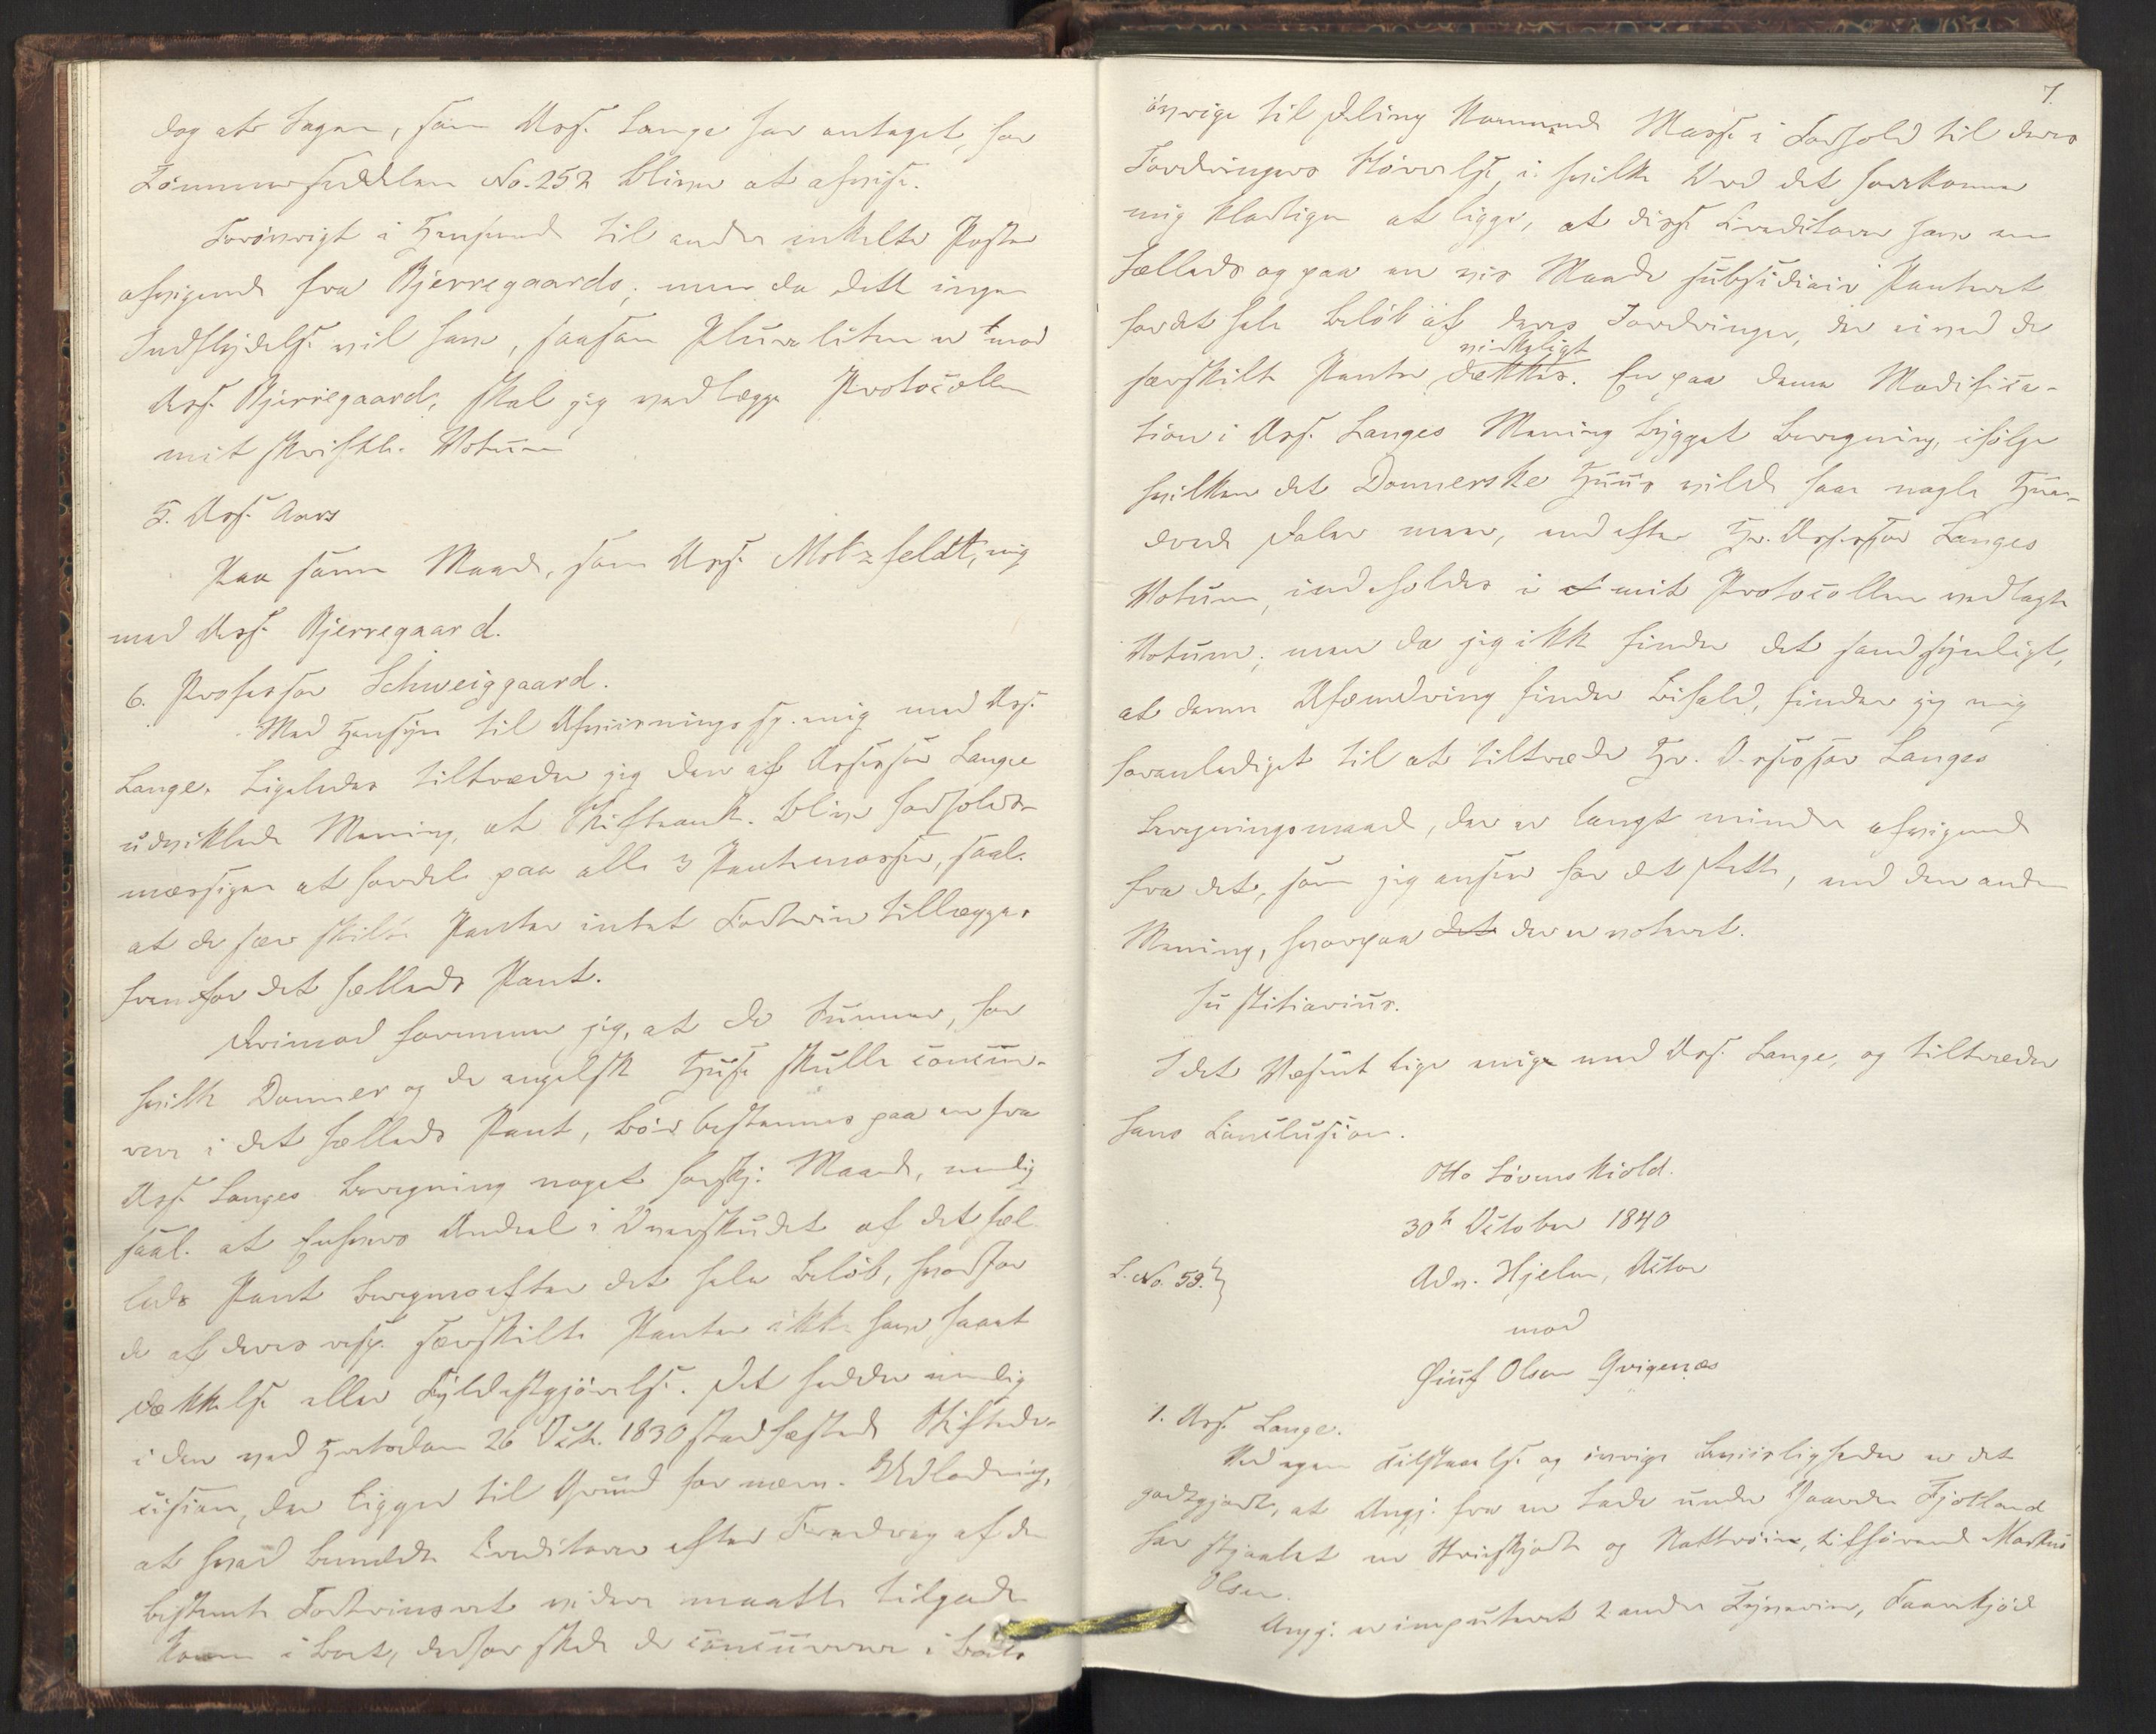 dog at Sagen, som Ass. Lange har antaget, for
Tømmerseddelen No. 252 bliver at afvise.
Forøvrigt i Henseende til andre enkelte Poster
afvigende fra Bjerregaards; men da dette ingen
Indflydelse vil have, saasom Pluraliteten er mod
Ass. Bjerregaard, skal jeg vedlægge Protocollen
mit skriftl. Votum
5. Ass. Aars
Paa samme Maade, som Ass. Motzfeldt, enig
med Ass. Bjerregaard.
6. Professor Schweiggaard.
Med Hensyn til Afviisningssp. enig med Ass.
Lange. Ligeledes tiltræder jeg den af Assessor Lange
udviklede Mening, at Skifteomk. blive forholds-
mæssigen at fordele paa alle 3 Pantemasser, saal.
at de særskilte Panter intet Fortrin tillægges
fremfor det fælleds Pant.
Derimod formener jeg, at de Summer, for
hvilke Donner og de engelske Huse skulle concur-
rere i det fælleds Pant, bør bestemmes paa en fra
Ass. Langes Beregning noget forskj. Maade, nemlig
saal. at Enhvers Andeel i Overskudet af det fæl-
leds Pant beregnes efter det hele Beløb, hvorfor
de af deres resp. særskilte Panter ikke have faaet
Dækkelse eller Fyldestgjørelse. Det hedder nemlig
i den ved Høiesteretsdom 26 Oct. 1830 stadfæstede Skiftede-
cision, der ligger til Grund for nærv. Udlodning,
at hvad bemeldte Creditorer efter Fradrag af den
bestemte Fortrinsret videre maatte tilgode
komme i Boet, derfor skede de concurrere i Boets
7.
øvrige til Deling kommende Masse i Forhold til deres
Fordringers Størrelse, i hvilke Ord det forekommer
mig klarligen at ligge, at disse Creditorer have en
fælleds og paa en vis Maade subsidiair Panteret
for det hele Beløb af deres Fordringer, der ei ved de
særskilte Panter virkeligt dækkes. En paa denne Modifica-
tion i Ass. Langes Mening bygget Beregning, ifølge
hvilken det Donnerske Huus vilde faae nogle Hun-
drede Daler mere, end efter Hr. Assessor Langes
Votum, indeholdes i et mit Protocollen vedlagte
Votum; men da jeg ikke finder det sandsynligt,
at denne Afændring finder Bifald, finder jeg mig
foranlediget til at tiltræde Hr. Assessor Langes
Beregningsmaade, der er langt mindre afvigende
fra det, som jeg anseer for det Rette, end den anden
Mening, hvorpaa det der er voteret.
Justitiarius.
I det Væsentlige enig med Ass. Lange, og tiltræder
hans Conclusion.
Otto Løvenskiold.
30te October 1840
L. No. 59.
Adv. Hjelm, Actor
mod
Gjuf Olsen Qvigenæs
1. Ass. Lange.
Ved egen Tilstaaelse og øvrige Beviisligheder er det
godtgjort, at Angj. fra en Lade under Gaarden Fjotland
har stjaalet en Striskjorte og Nattrøie, tilhørende Markus
Olsen.
Angj. er imputeret 2 andre Tyverier, Faarekjød